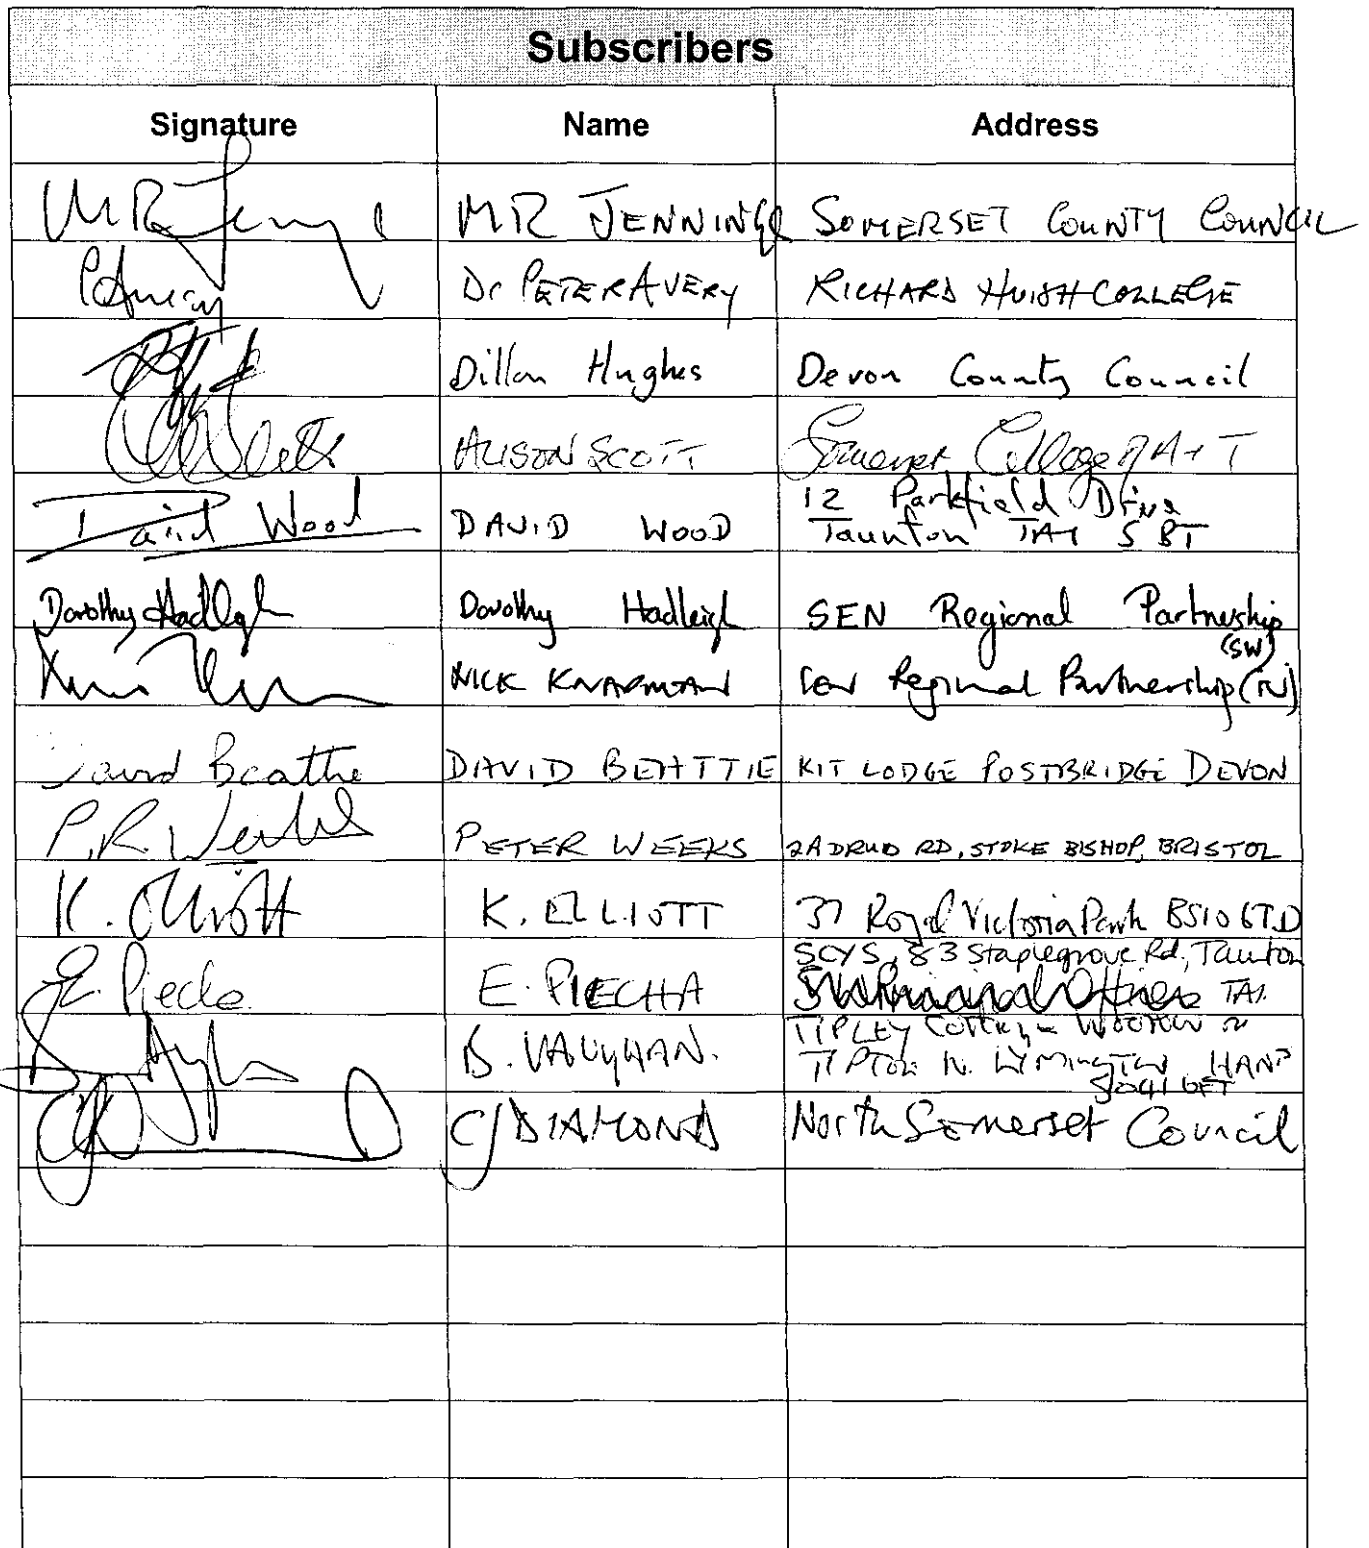 Subscribers
Signature Name Address
MR JENNINGS SOMERSET COUNTY COUNCIL
Dr PETER AVERY RICHARD HUISH COLLEGE
Dillon Hughes Devon County Council
ALISON SCOTT Somerset College of A+T
12 Parkfield Drive
David Wood DAVID WOOD Taunton TA1 5BT
Dorothy Hadleigh Dorothy Hadleigh SEN Regional Partnership
(SW)
NICK KNAPMAN SEN Regional Partnership
David Beattie DAVID BEATTIE KIT LODGE POSTBRIDGE DEVON
P.R. Weeks PETER WEEKS 2A DRUID RD, STOKE BISHOP, BRISTOL
K. Elliott K. ELLIOTT 37 Royal Victoria Park BS10 6TD
SCYS, 83 Staplegrove Rd, Taunton
E. Piecha E. PIECHA TA1.
TIPLEY
B. VAUGHAN. LYMINGTON HANTS
CJ DIAMOND North Somerset Council